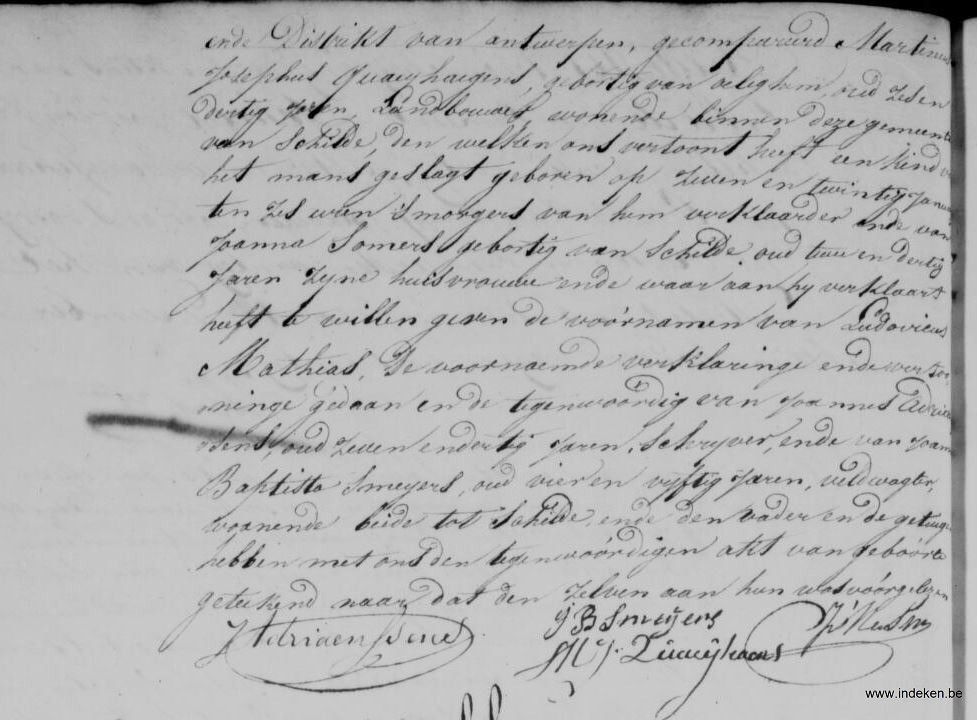 ende Distrikt van antwerpen, gecompareerd Martinus
Josephus Quaeyhaegens, gebortig van oeleghem, oud zes en
dertig Jaren, Landbouwer, wonende binnen deze gemeente
van Schilde, den welken ons vertoont heeft een kind v
het mans geslagt geboren op zeven en twintig Janua
ten zes uren s'morgers van hem verklaarder ende van
Joanna Somers gebortig van Schilde, oud twee en dertig
Jaren zyne huisvrouwe ende waar aan hy verklaart
heeft te willen geven de voórnamen van Ludovicus
Mathias, De voornaemde verklaringe ende vertoo-
ninge gedaan en de tegenwoórdig van Joannes Adriae
nsens, oud zeven en dertig Jaren, Schryver, ende van Joann
Baptista Smeyers, oud vier en vyftig Jaren, veldwagter,
woonende beide tot Schilde, ende den vader en de getuige
hebben met ons den tegenwoórdigen akt van geboórte
geteekend naar dat den zelven aan hun was voórgelezen
J Adriaenssens
J B Smeÿers
M J. Quaeyhaegens
www.indeken.be